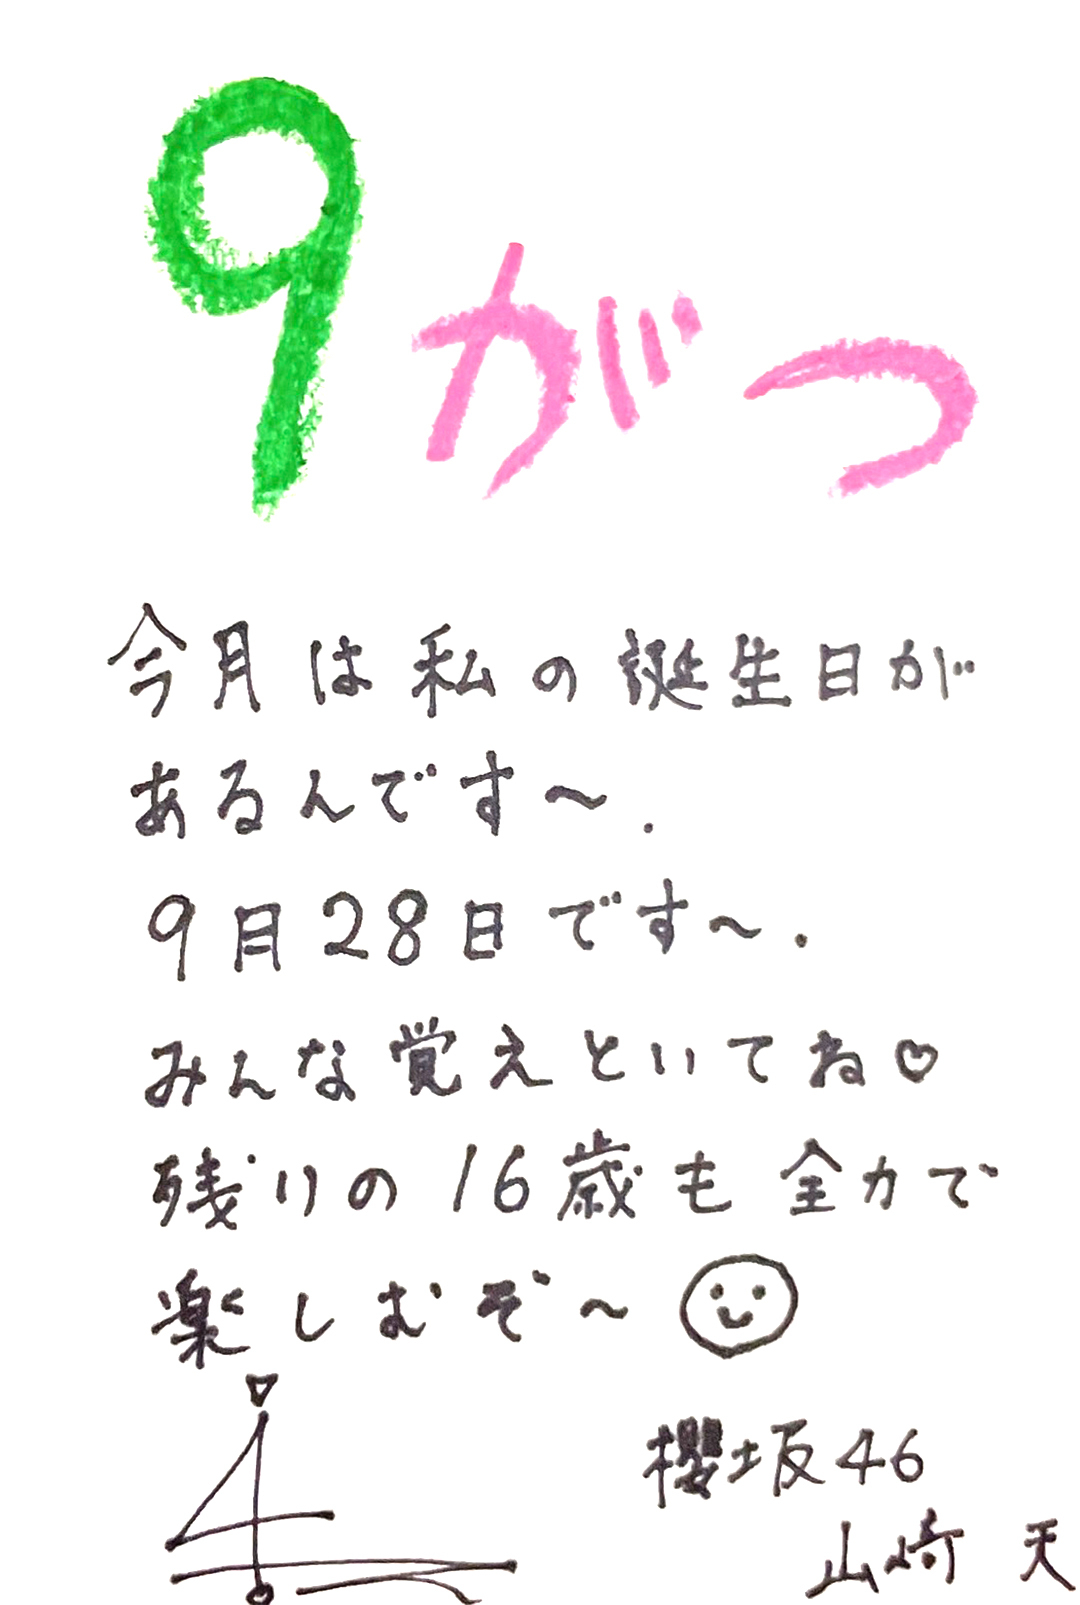 9がつ
今月は私の誕生日が
あるんです〜.
9月28日です〜.
みんな覚えといてね♡
残りの16歳も全力で
楽しむぞ〜
櫻坂46
山﨑 天